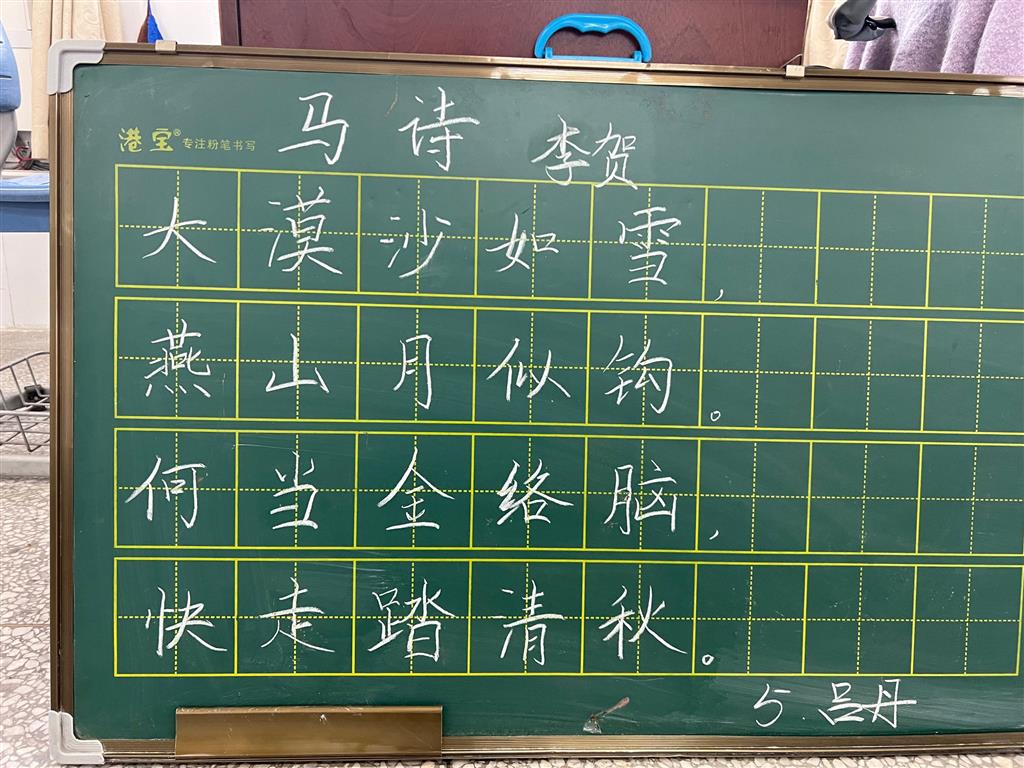 马诗 李贺
港宝® 专注粉笔书写
大漠沙如雪,
燕山月似钩。
何当金络脑,
快走踏清秋。
5.吕丹